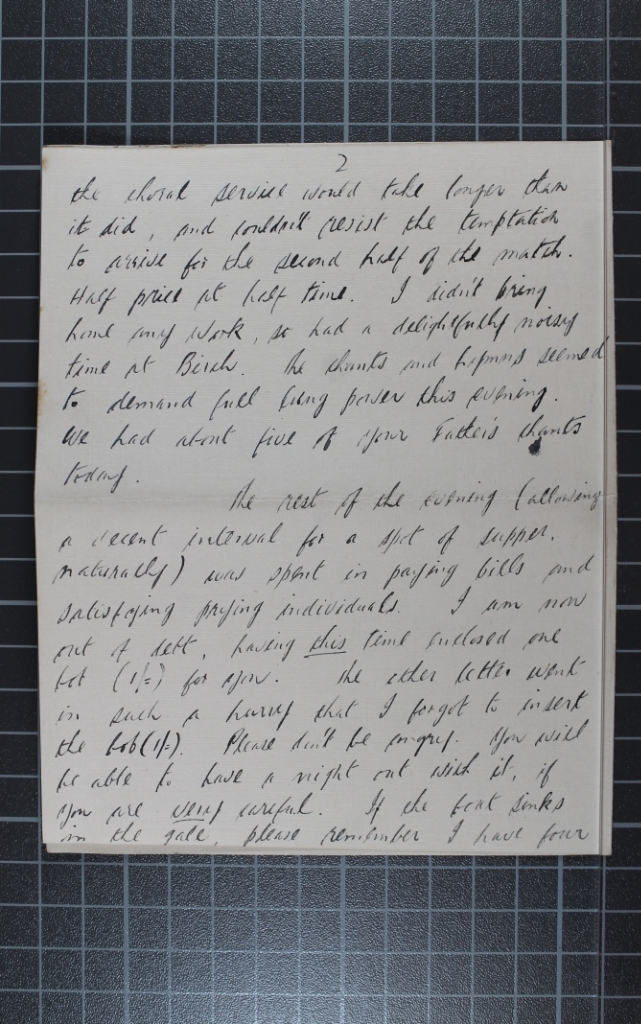 2
the choral service would take longer than
it did, and couldn't resist the temptation
to arrive for the second half of the match.
Half price at half time. I didn't bring
home any work, so had a delightfully noisy
time at Birch. The chants and hymns seemed
to demand full lung power this evening.
We had about five of your Father's chants
today.
The rest of the evening (allowing
a decent interval for a spot of supper,
naturally) was spent in paying bills and
satisfying prying individuals. I am now
out of debt, having this time enclosed one
bob (1/=) for you. The other letter went
in such a hurry that I forgot to insert
the bob (1/=). Please don't be angry. You will
be able to have a night out with it, if
you are very careful. If the boat sinks
in the gale, please remember I have four